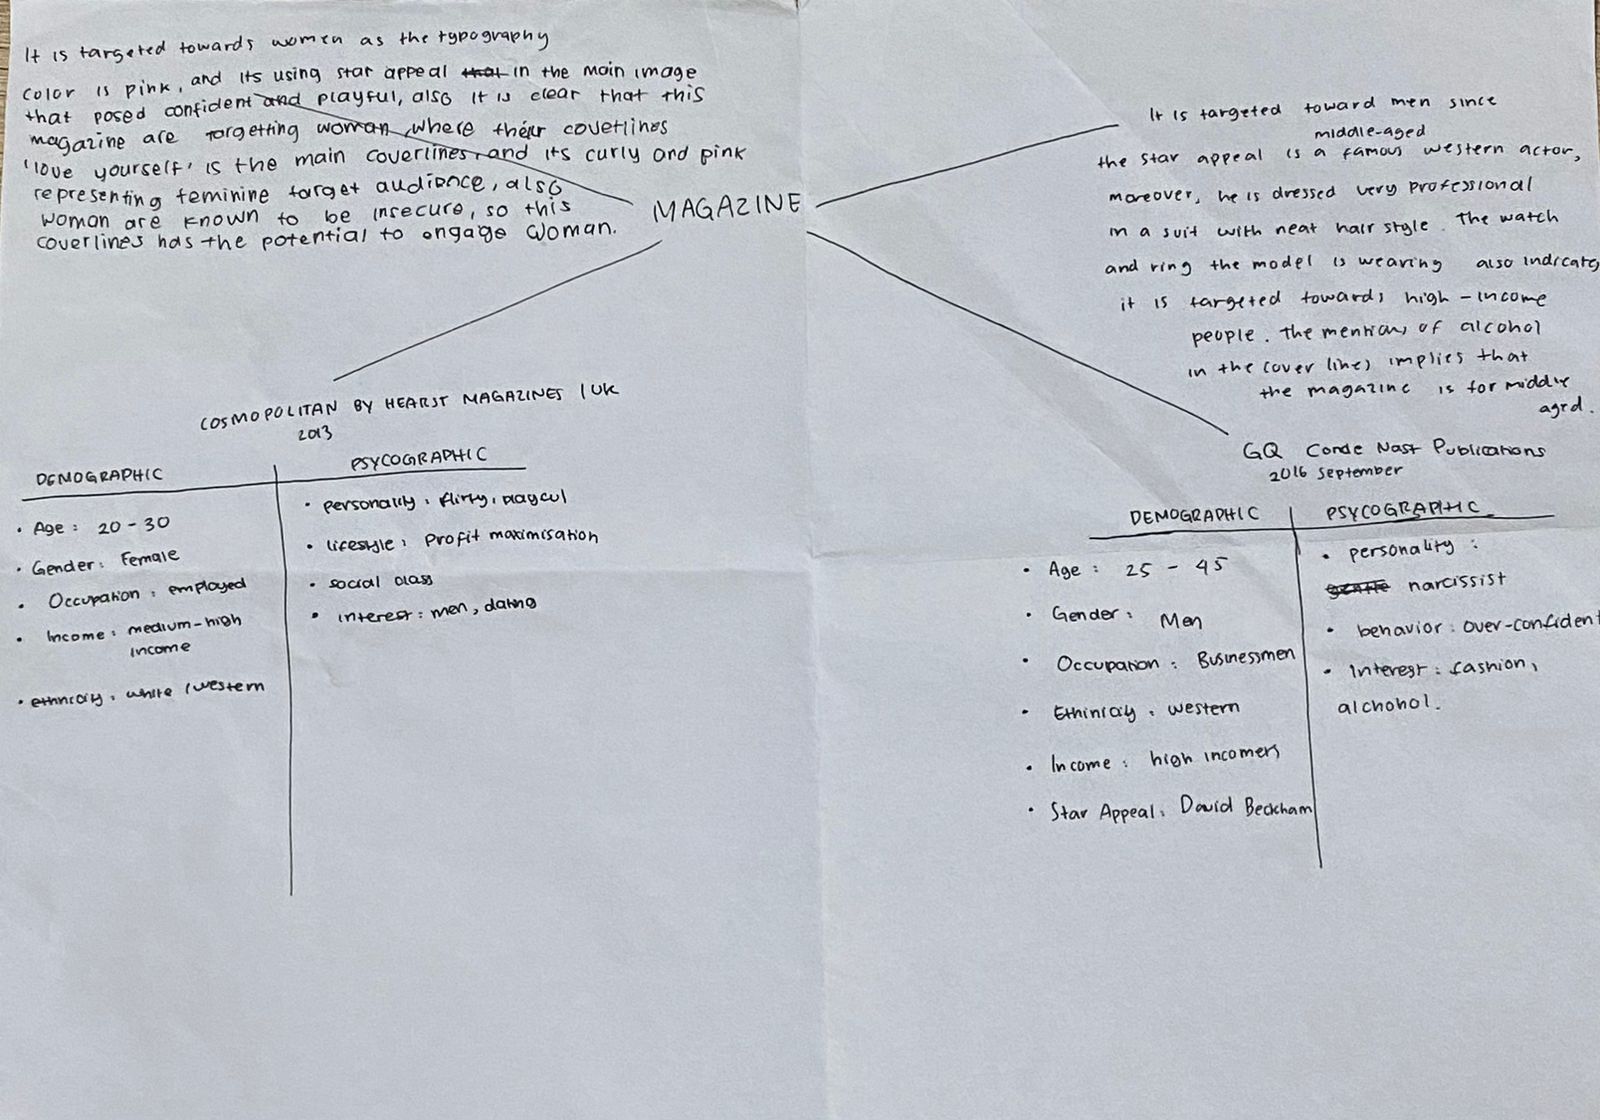 It is targeted towards women as the typography
color is pink, and its using star appeal that in the main image
that posed confident and playful, also it is clear that this
magazine are targetting woman, where their coverlines
'love yourself' is the main coverlines, and its curly and pink
representing feminine target audience, also
woman are known to be insecure, so this
coverlines has the potential to engage woman.
MAGAZINE
It is targeted toward men since
middle-aged
the star appeal is a famous western actor,
moreover, he is dressed very professional
in a suit with neat hair style. The watch
and ring the model is wearing also indicats
it is targeted towards high-income
people. The mentions of alcohol
in the cover lines implies that
the magazine is for middle
aged.
COSMOPOLITAN BY HEARST MAGAZINES / UK
2013
DEMOGRAPHIC
• Age: 20-30
• Gender: Female
• Occupation: employed
• Income: medium-high
income
• ethnicity: white / western
PSYCOGRAPHIC
• personality: flirty, playful
• lifestyle: Profit maximisation
• social class
• interest: men, dating
GQ Conde Nast Publications
2016 September
DEMOGRAPHIC
• Age: 25-45
• Gender: Men
• Occupation: Businessmen
• Ethinicity: western
• Income: high incomers
• Star Appeal: David Beckham
PSYCOGRAPHIC
• personality:
narcissist
• behavior: over-confident
• Interest: fashion,
alchohol.